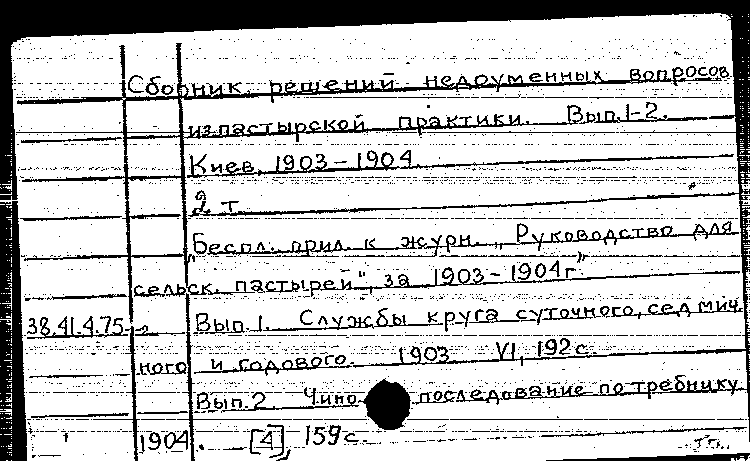 Сборник решений недоуменных вопросов
из пастырской практики. Вып.1-2.
Киев, 1903-1904
2 т
"Беспл. прил. к журн. „Руководство для
сельск. пастырей", за 1903-1904г"
38.41.4.75 Вып.1. Службы круга суточного, седмич
ного и годового. 1903 VI, 192 с.
Вып.2 Чино последование по требнику
1904. [4], 159 с.